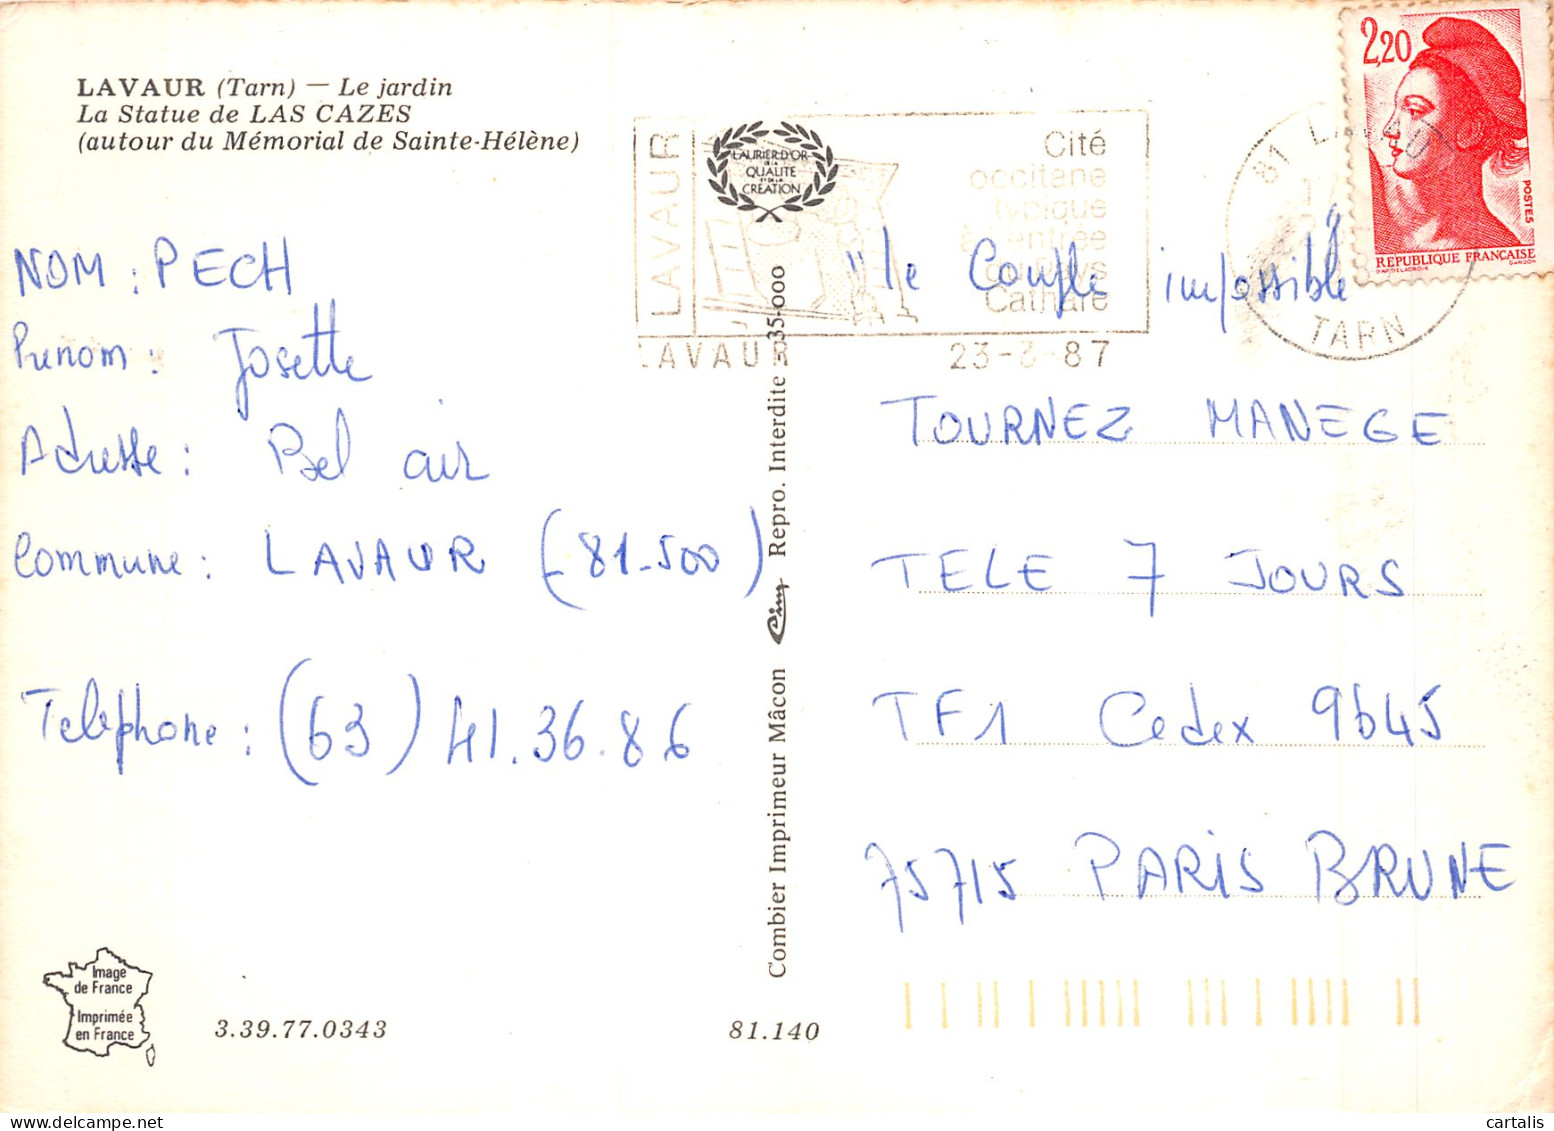 LAVAUR (Tarn) — Le jardin
La Statue de LAS CAZES
(autour du Mémorial de Sainte-Hélène)
NOM : PECH
Prénom : Josette
Adresse : Bel air
Commune : LAVAUR (81-500)
Telephone : (63) 41.36.86
Image
de France
Imprimée
en France
3.39.77.0343
81.140
Combier Imprimeur Mâcon Cim Repro. Interdite 335-000
LAURIER D'OR
DE LA
QUALITE
ET DE LA
CREATION
LAVAUR
Cité
occitane
typique
à l'entrée
du Pays
Cathare
LAVAUR 23-3-87
81 LAVAUR
TARN
2,20
POSTES
REPUBLIQUE FRANÇAISE
D'AP. DELACROIX GANDON
"le Couple impossible"
TOURNEZ MANEGE
TELE 7 JOURS
TF1 Cedex 9645
75715 PARIS BRUNE
cartalis